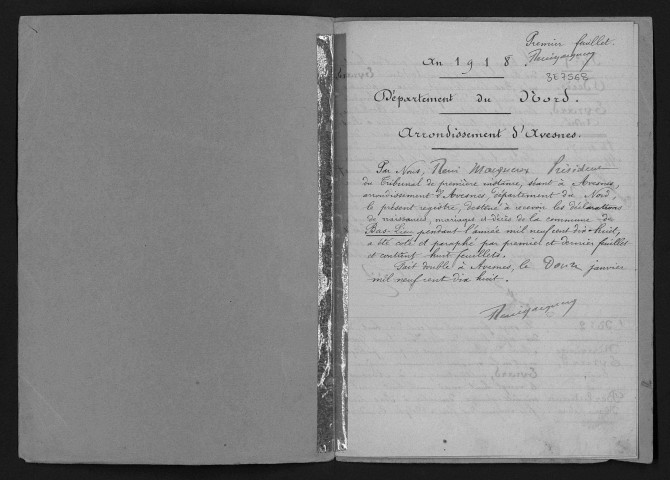 Premier feuillet.
An 1918
3E7568
Département du Nord.
Arrondissement d'Avesnes.
Par Nous, Remi Maigneux Président
du Tribunal de première instance, séant à Avesnes,
arrondissement d'Avesnes, département du Nord
le présent registre, destiné à recevoir les déclarations
de naissances, mariages et décès de la commune de
Bas-Lieu pendant l'année mil neuf cent dix-huit,
a été coté et paraphé par premier et dernier feuillet
et contient huit feuillets.
Fait double à Avesnes, le Douze janvier
mil neuf cent dix huit.